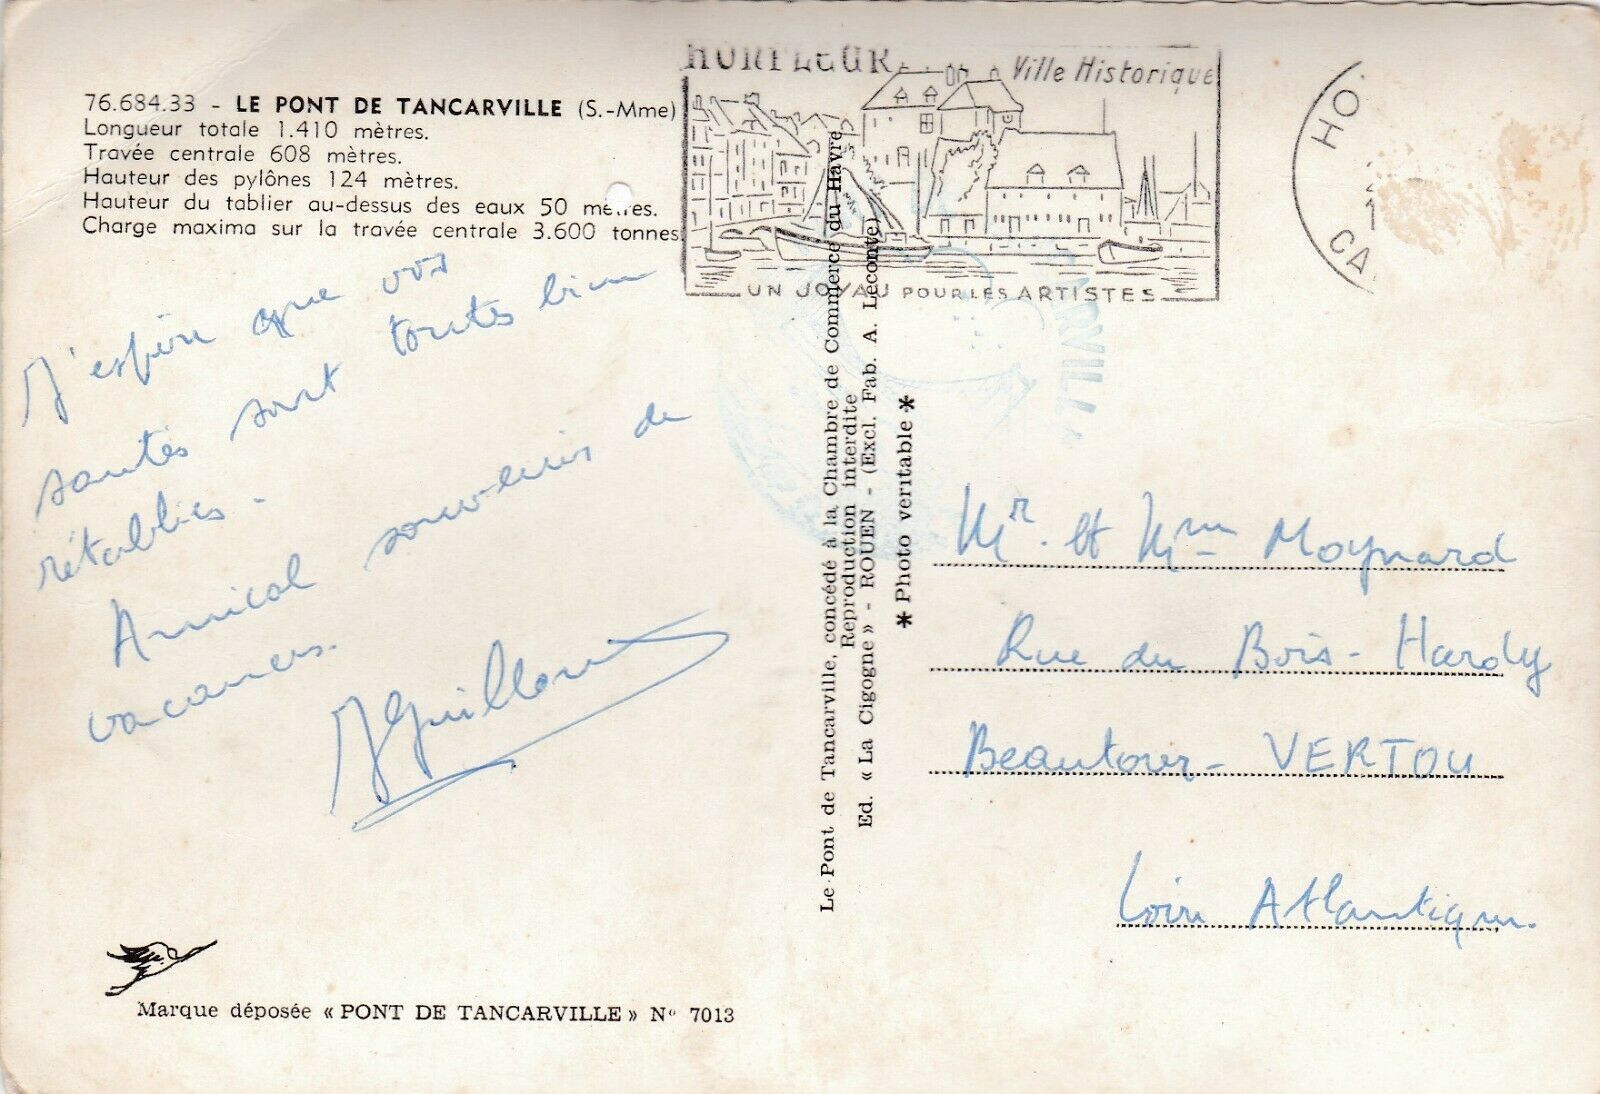 76.684.33 - LE PONT DE TANCARVILLE (S.-Mme)
Longueur totale 1.410 mètres.
Travée centrale 608 mètres.
Hauteur des pylônes 124 mètres.
Hauteur du tablier au-dessus des eaux 50 mètres.
Charge maxima sur la travée centrale 3.600 tonnes.
J'espère que vos
santés sont toutes bien
rétablies.
Amical souvenirs de
vacances.
Marque déposée « PONT DE TANCARVILLE » N° 7013
HONFLEUR Ville Historique
UN JOYAU POUR LES ARTISTES
HO
CA
ARVILL
Le Pont de Tancarville, concédé à la Chambre de Commerce du Havre
Reproduction interdite
Ed. « La Cigogne » - ROUEN - (Excl. Fab. A. Leconte)
* Photo veritable *
Mr. et Mme Moynard
Rue du Bois-Hardy
Beautour - VERTOU
Loire Atlantique.